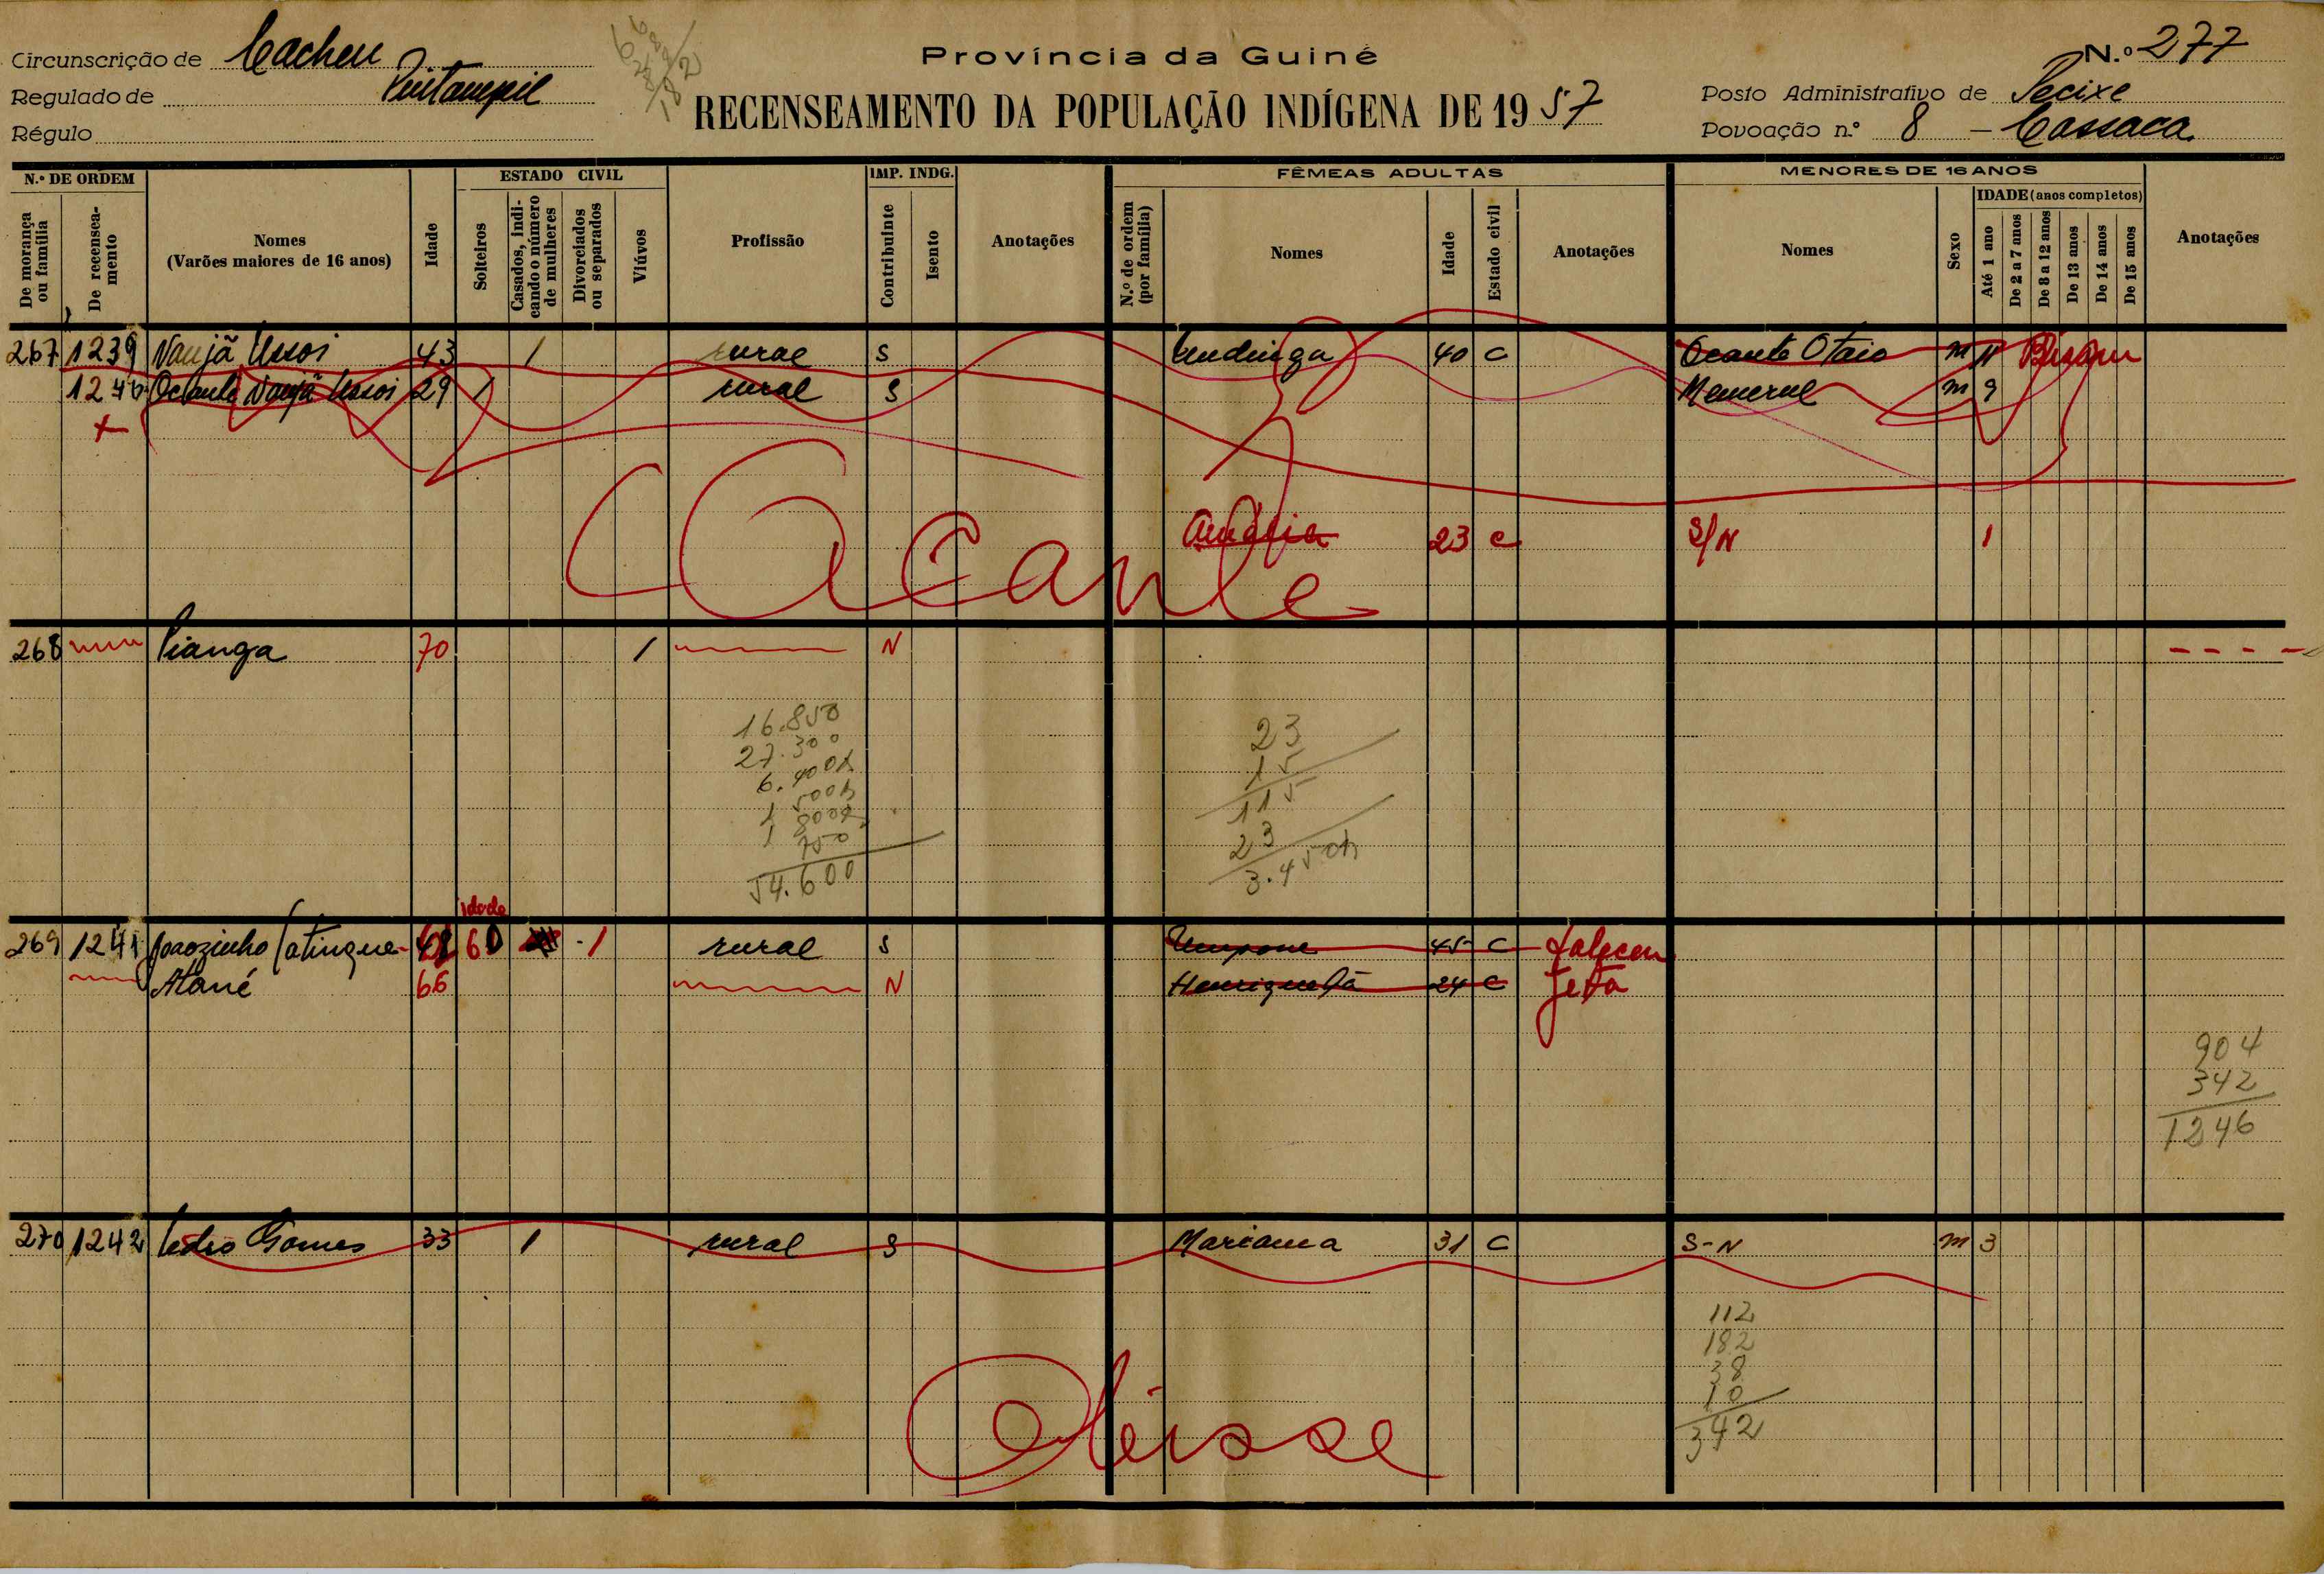 Província da Guiné
N.º 277
Circunscrição de Cacheu
Regulado de
Régulo
RECENSEAMENTO DA POPULAÇÃO INDÍGENA DE 1957
Posto Administrativo de Pecixe
Povoação n.º 8 - Cassaca
N.º DE ORDEM
De morança ou família
De recensea-mento
Nomes
(Varões maiores de 16 anos)
Idade
ESTADO CIVIL
Solteiros
Casados, indi-cando o número de mulheres
Divorciados ou separados
Viúvos
Profissão
IMP. INDG.
Contribuinte
Isento
Anotações
FÊMEAS ADULTAS
N.º de ordem (por família)
Nomes
Idade
Estado civil
Anotações
MENORES DE 16 ANOS
Nomes
Sexo
IDADE (anos completos)
Até 1 ano
De 2 a 7 anos
De 8 a 12 anos
De 13 anos
De 14 anos
De 15 anos
Anotações
267 1239 Naujã Ussoi 43 1 rural S 40 C Ocante Otaio m
Ocante Naujã Ussoi 29 1 rural S m 9
23 c S/N 1
Ocante
268 Pianga 70 1 N
16.850
27.300
23
15
115
23
54.600
idade
269 1241 Joaozinho 60 1 rural S 45 C Faleceu
Atané 66 N Henriqueta 24 C Jeta
904
342
1246
270 1242 Pedro Gomes 33 1 rural S Mariama 31 C S-N m 3
112
182
38
10
342